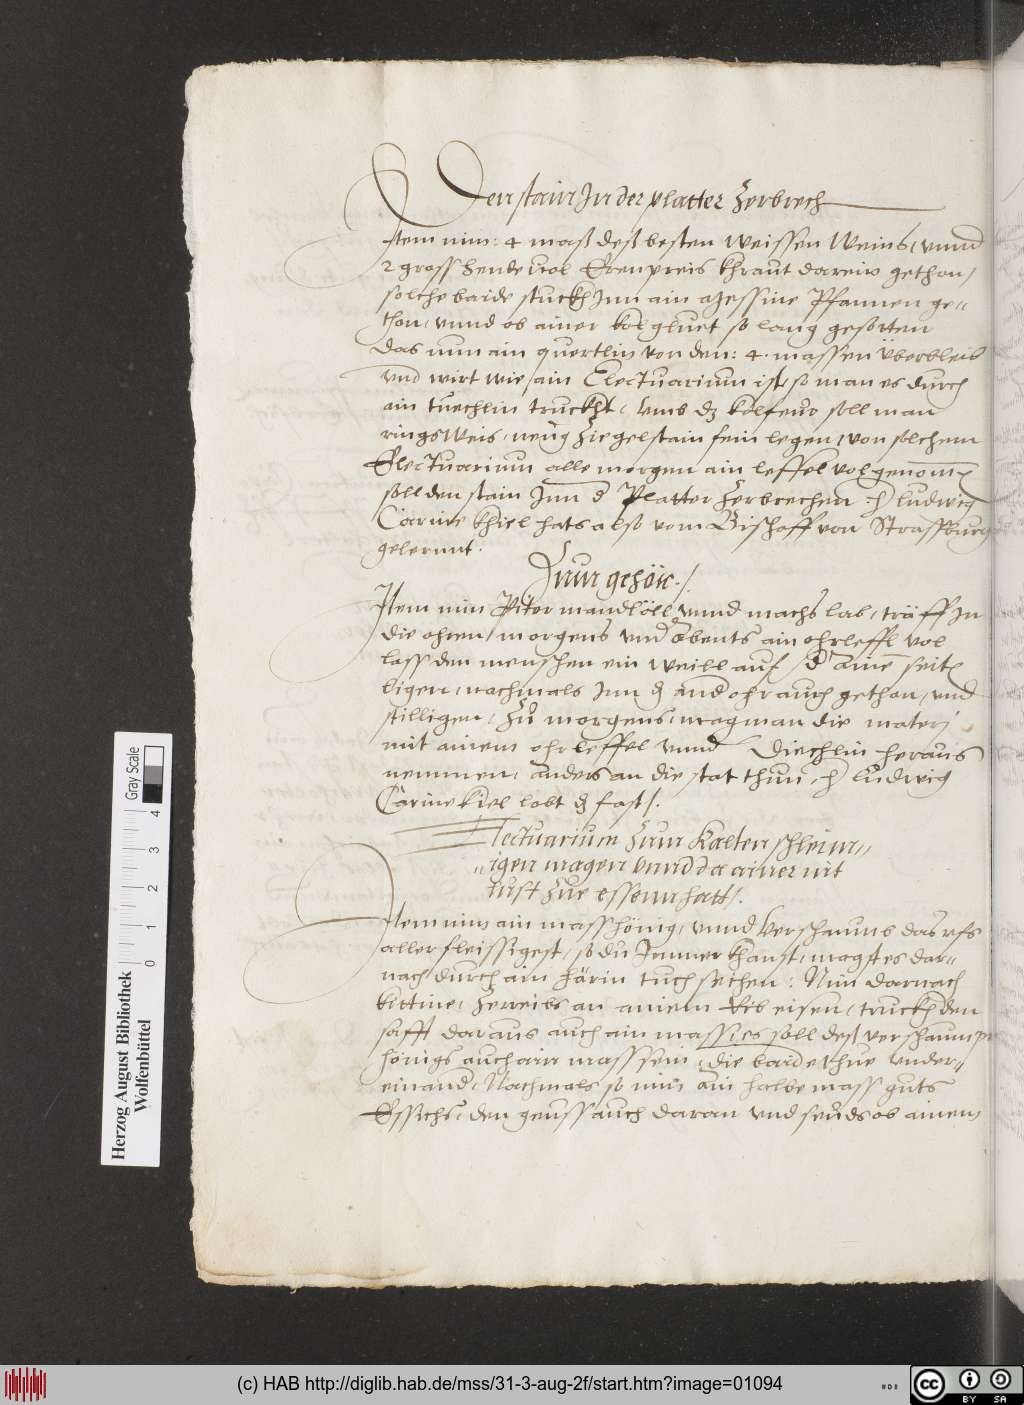 Den stain In der platter Zerbrech
Item nim: 4 maß deß besten Weissen Weins, vnnd
2 gross hende vol Erenpreis khraut darein gethon/
solche baide stuckh Inn ain Messine Pfannen ge=
thon, vnnd ob ainer kolgluet so lang gesotten
das nun ain quertlin von den: 4. massen überbleib
vnd wirt wie ain Electuarium ist, so man es durch
ain tuechlin truckht, vmb dz kolfeur soll man
rings Weis, neun Ziegelstain fein legen, von solchem
Electuarium alle morgen ain leffel vol genomē
soll den stain Inn d Platter Zerbrechen h ludwig
Carine khiel hats also vom Bischoff von Strassburg
gelernnt.
Zum gehör./.
Item nim Piter mandlöll vnnd machs lab, träff In
die ohren, morgens vnd abents ain ohrleffl vol
lass den menschen ein Weill auf d ainē seitē
ligen, nachmals Inn d and ohr auch gethon, vnd
still ligen, Zů morgens, mag man die materj
mit ainem ohrleffel vnnd diechlin heraus
nemmen, anders an die stat thun, h ludwig
Carine kiel lobt d fast/.
Electuarium Zum kalten schleim=
=igen magen vnnd da ainer nit
lust Zue essenn hatt/.
Item nim ain mass hönig, vnnd verschaums das ufs
aller fleissigest, so du Immer khanst, magst es dar=
nach durch ain härin tuch seihen: Nim darnach
kittine, Zerreibs an ainem Ribeisen, truckh den
safft daraus auch ain mass, ies soll deß verschaumpt
hönigs auch ain mass sein, die baide thue vnder=
einand, Nachmals so nim ain halbe mass guts
Essichs, den geuss auch daran vnd seuds ob ainem
Herzog August Bibliothek
Wolfenbüttel
0 1 2 3 4
Gray Scale
(c) HAB http://diglib.hab.de/mss/31-3-aug-2f/start.htm?image=01094
cc BY SA